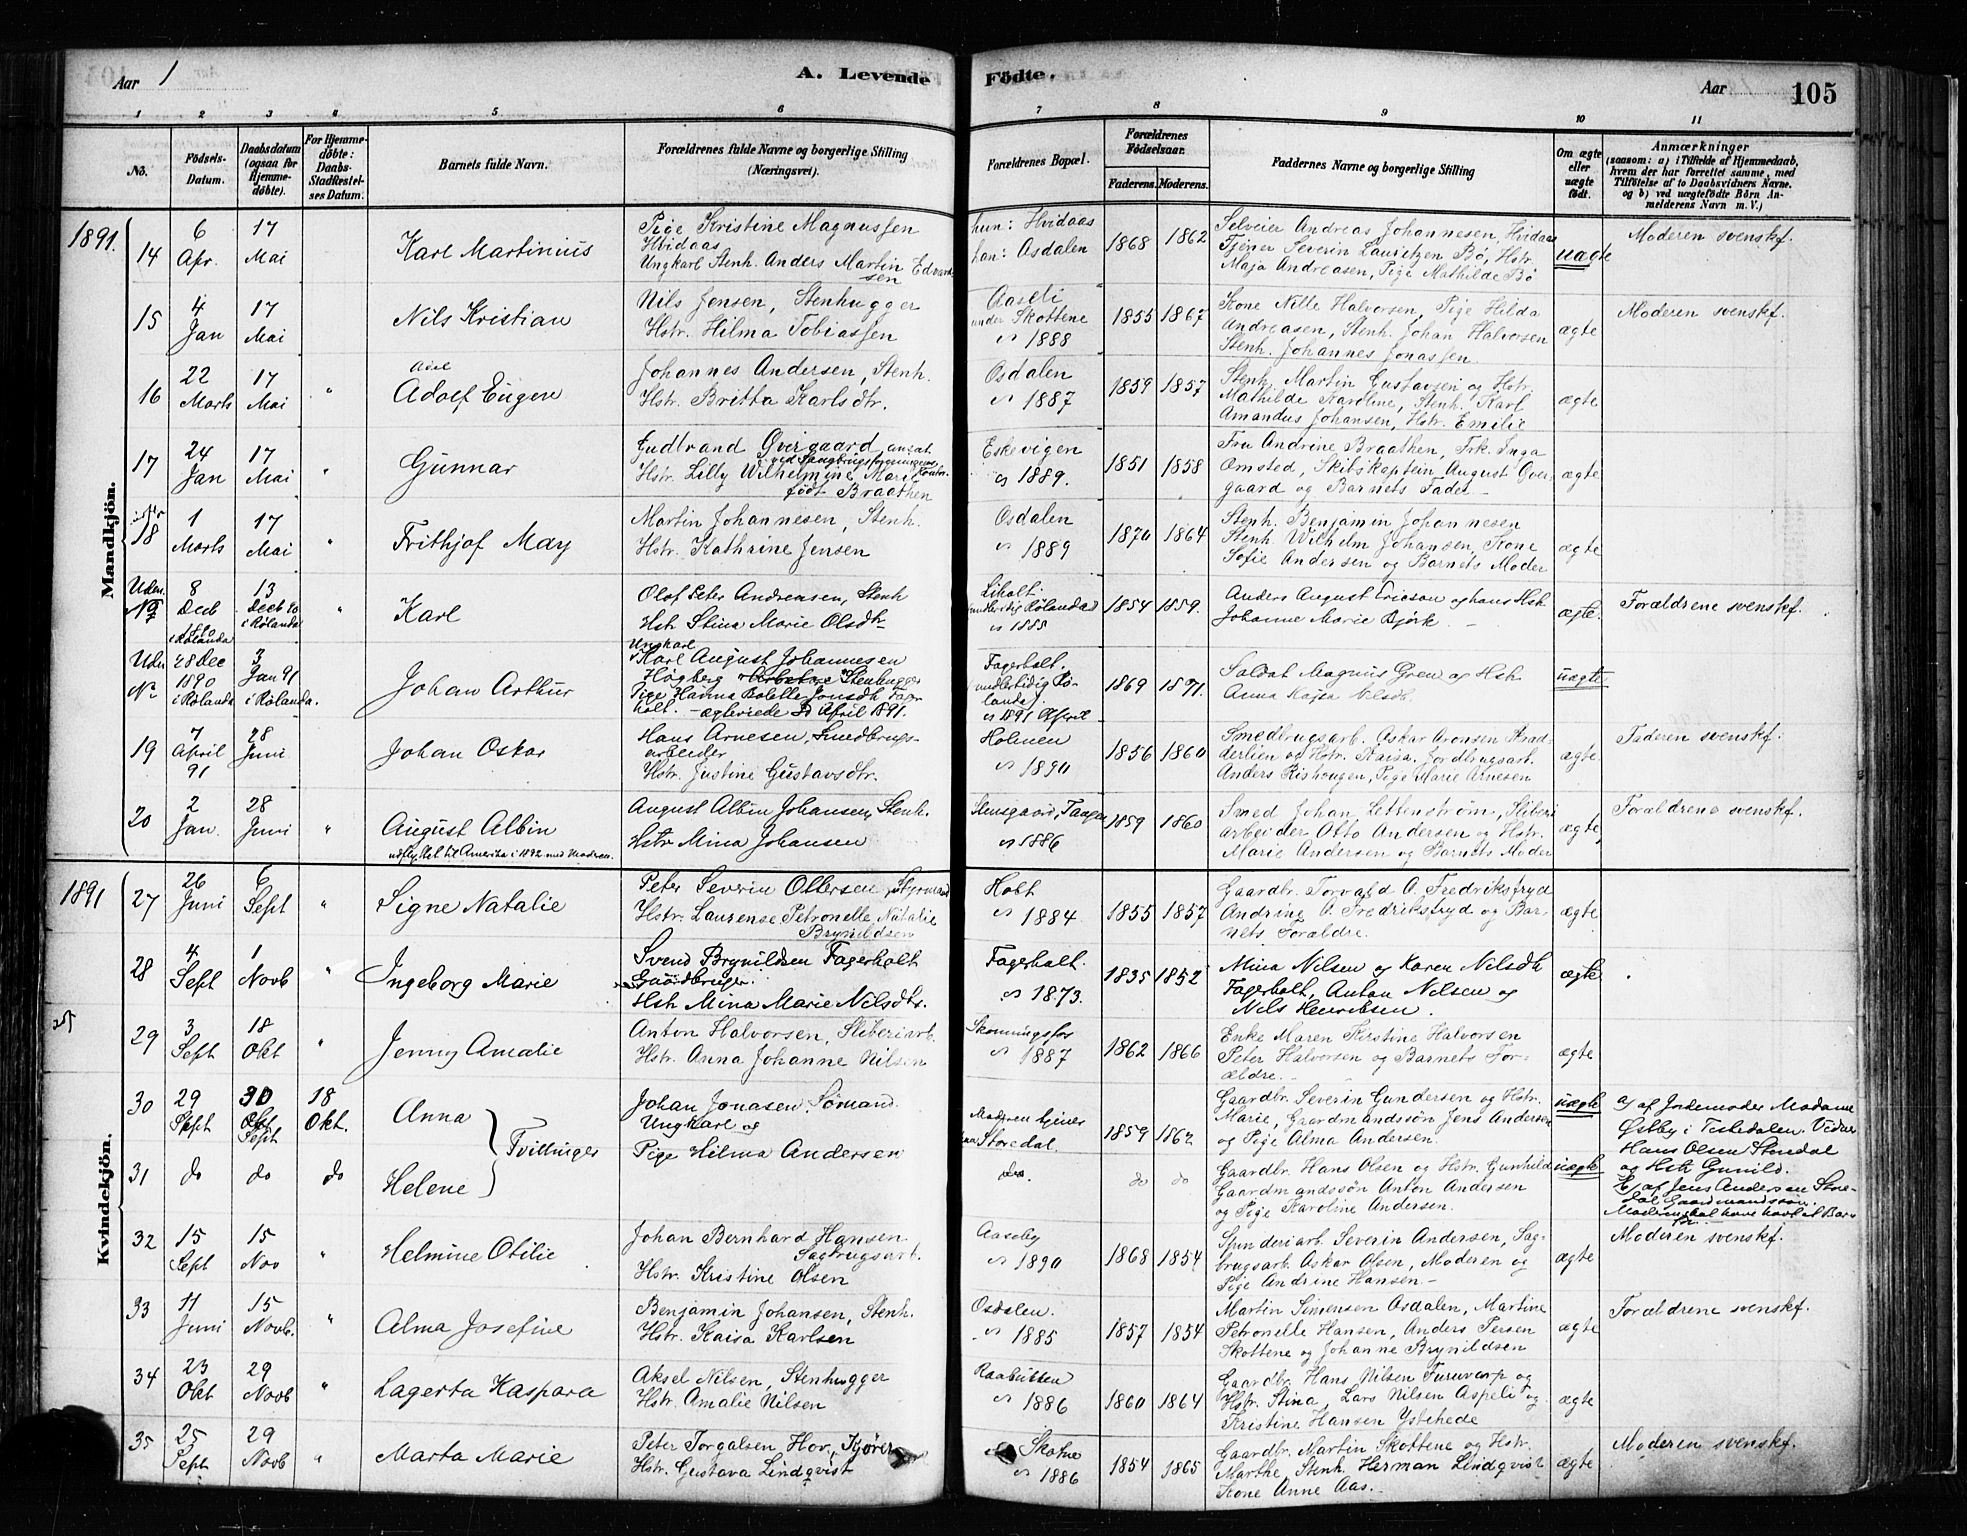 Aar 1
A. Levende
Födte.
Aar
105
1 2 3 4 5 6 7 8 9 10 11
No.
Födsels-
Datum.
Daabsdatum
(ogsaa for
Hjemme-
döbte).
For Hjemme-
döbte:
Daabs-
Stadfæstel-
ses Datum.
Barnets fulde Navn.
Forældrenes fulde Navne og borgerlige Stilling
(Næringsvei).
Forældrenes Bopæl.
Forældrenes
Födselsaar.
Faderens. Moderens.
Faddernes Navne og borgerlige Stilling
Om ægte
eller
uægte
födt.
Anmærkninger
(saasom: a) i Tilfælde af Hjemmedaab,
hvem der har forrettet samme, med
Tilföielse af to Daabsvidners Navne.
og b) ved uægtefödte Börn An-
melderens Navn m. V.)
Mandkjön.
1891.
14
6
Apr.
17
Mai
Karl Martinius
Pige Kristine Magnussen
Hvidaas
Ungkarl Stenh. Anders Martin Edvard-
sen
hun: Hvidaas
han: Osdalen
1868 1862
Selveier Andreas Johannesen, Hvidaas
Tjener Severin Lauritzen Bö, Hstr.
Maja Andreasen, Pige Mathilde Bö
uægte
Moderen svensk.
15
4
Jan
17
Mai
Nils Kristian
Nils Jensen, Stenhugger
Hstr. Hilma Tobiassen
Aaseli
under Skottene
1888
1855 1867
Kone Nille Halvorsen, Pige Hilda
Andreasen, Stenh. Johan Halvorsen
Stenh. Johannes Jonassen
ægte
Moderen svensk.
16
22
Marts
17
Mai
"
Axel
Adolf Eugen
Johannes Andersen, Stenh.
Hstr. Britta Karlsdtr.
Osdalen
1887
1859 1857
Stenh. Martin Gustavsen og Hstr.
Mathilde Karoline, Stenh. Karl
Amandus Johansen, Hstr. Emilie
ægte
17
24
Jan
17
Mai
"
Gunnar
Gudbrand Overgaard, ansat
Hstr. Lilly Wilhelmine Marie
födt Braathen
Eskevigen
1889.
1851 1858
Fru Andrine Braathen, Frk. Inga
Omsted, Skibskaptein August Over-
gaard og Barnets Fader
ægte
18
1
Marts
17
Mai
"
Frithjof May
Martin Johannesen, Stenh.
Hstr. Kathrine Jensen
Osdalen
1889
1870 1864
Stenh. Benjamin Johannesen
Stenh. Wilhelm Johansen, Kone
Sofie Andersen og Barnets Moder
ægte
Uden
No
8
Decb
1890
i Rölanda
13
Decb 90
i Rölanda
"
Karl
Olof Peter Andreasen, Stenh
Hstr Stina Marie Olsdtr
Liholt.
1885
1854 1859.
Anders August Ericson og hans Hstr
Johanne Marie Björk.
ægte.
Forældrene svensk.
Uden
No
28 Dec
1890
i Rölanda
3
Jan 91
i Rölanda.
Johan Arthur
Ungkarl
Karl August Johannesen
Högberg Arbeider Stenhugger
Pige Hanna Bolette Jonsdtr Fager-
holt. - ægteviede April 1891.
Fagerholt.
(midlertidig Rö-
landa).
1891 April
1869 1871.
Soldat Magnus Gren og Hstr
Anna Kajsa Nilsdtr.
uægte
19
7
April
91
28
Juni
Johan Oskar
Hans Arnesen, Smedbrugs-
arbeider
Hstr. Justine Gustavsdtr.
Holmen
1890
1856 1860
Smedbrugsarb. Oskar Aronsen Krad-
derlien og Hstr. Kaisa, Jordbrugsarb.
Anders Rishougen, Pige Marie Arnesen
ægte
Faderen svensk.
20
2
Jan.
28
Juni
"
August Albin
udflyttet til Amerika i 1892 med Moderen.
August Albin Johansen, Stenh.
Hstr Mina Johansen
Stensgaard,
1886
1859 1860
Smed Johan Zetterström, Sliberi
arbeider Otto Andersen og Hstr.
Marie Andersen og Barnets Moder
ægte
Forældrene svensk.
Kvindekjön.
1891
27
26
Juni
6
Sept
"
Signe Natalie
Peter Severin Ottersen, Styrmand
Hstr. Laurense Petronelle Natalie
Brynildsen
Holt
1884
1855 1857
Gaardbr. Torvald O. Fredriksfryd
Andrine O. Fredriksfryd og Bar-
nets Forældre.
ægte
28
4
Sept
1
Novb
"
Ingeborg Marie
Svend Brynildsen Fagerholt
Gaardbruger.
Hstr Mina Marie Nilsdtr.
Fagerholt.
1873.
1835 1852
Mina Nilsen og Karen Nilsdtr
Fagerholt, Anton Nilsen og
Nils Henriksen.
ægte
29
3
Sept
18
Okt
"
Jenny Amalie
Anton Halvorsen, Sliberiarb.
Hstr. Anna Johanne Nilsen
Skonningsfos
1887
1862 1866
Enke Maren Kirstine Halvorsen
Peter Halvorsen og Barnets For-
ældre.
ægte
30
29
Sept
30
Okt
Sept
18
Okt.
Anna
Tvillinger
Johan Jonasen, Sömand
Ungkarl og
Pige Hilma Andersen
Moderen tjener
Storedal.
1859 1862
Gaardbr. Severin Gundersen og Hstr.
Marie, Gaardmandssön Jens Andersen
og Pige Alma Andersen.
uægte
a) af Jordemoder Madame
Östby i Tistedalen. Vidner
Hans Olsen Stendal
og Hstr Gunild.
31
do
do
do
Helene
do.
do do
Gaardbr. Hans Olsen og Hstr. Gunhild
Gaardmandssön Anton Andersen
og Pige Karoline Andersen.
uægte
b) af Jens Andersen Store-
dal Gaardmandssön.
32
15
Sept
15
Nov
"
Helmine Otilie
Johan Bernhard Hansen
Sagbrugsarb.
Hstr. Kristine Olsen
Aaseby
1890
1868 1854
Spinderiarb. Severin Andersen, Sag-
brugsarb. Oskar Olsen, Moderen og
Pige Andrine Hansen
ægte
Moderen svensk.
33
11
Juni
15
Novb.
"
Alma Josefine
Benjamin Johansen, Stenh.
Hstr. Kaisa Karlsen
Osdalen.
1885
1857 1854
Martin Simensen Osdalen, Martine
Petronelle Hansen, Anders Persen
Skottene og Johanne Brynildsen
ægte
Forældrene svensk.
34
23
Okt
29
Novb
"
Lagerta Kaspara
Aksel Nilsen, Stenhugger
Hstr. Amalie Nilsen
Raabutten
1886
1860 1864
Gaardbr. Hans Nilsen Furuvarp og
Hstr. Stina, Lars Nilsen Aspeli og
Kristine Hansen Ystehede
ægte
35
25
Sept
29
Novb
"
Marta Marie
Peter Torgalsen, Hov. Kjörer
Hstr. Gustava Lindqvist
Skotne
1886
1854 1865
Gaardbr. Martin Skottene og Hstr.
Marthe, Stenh. Herman Lindqvist
Kone Anne Aas.
ægte
Moderen svensk.